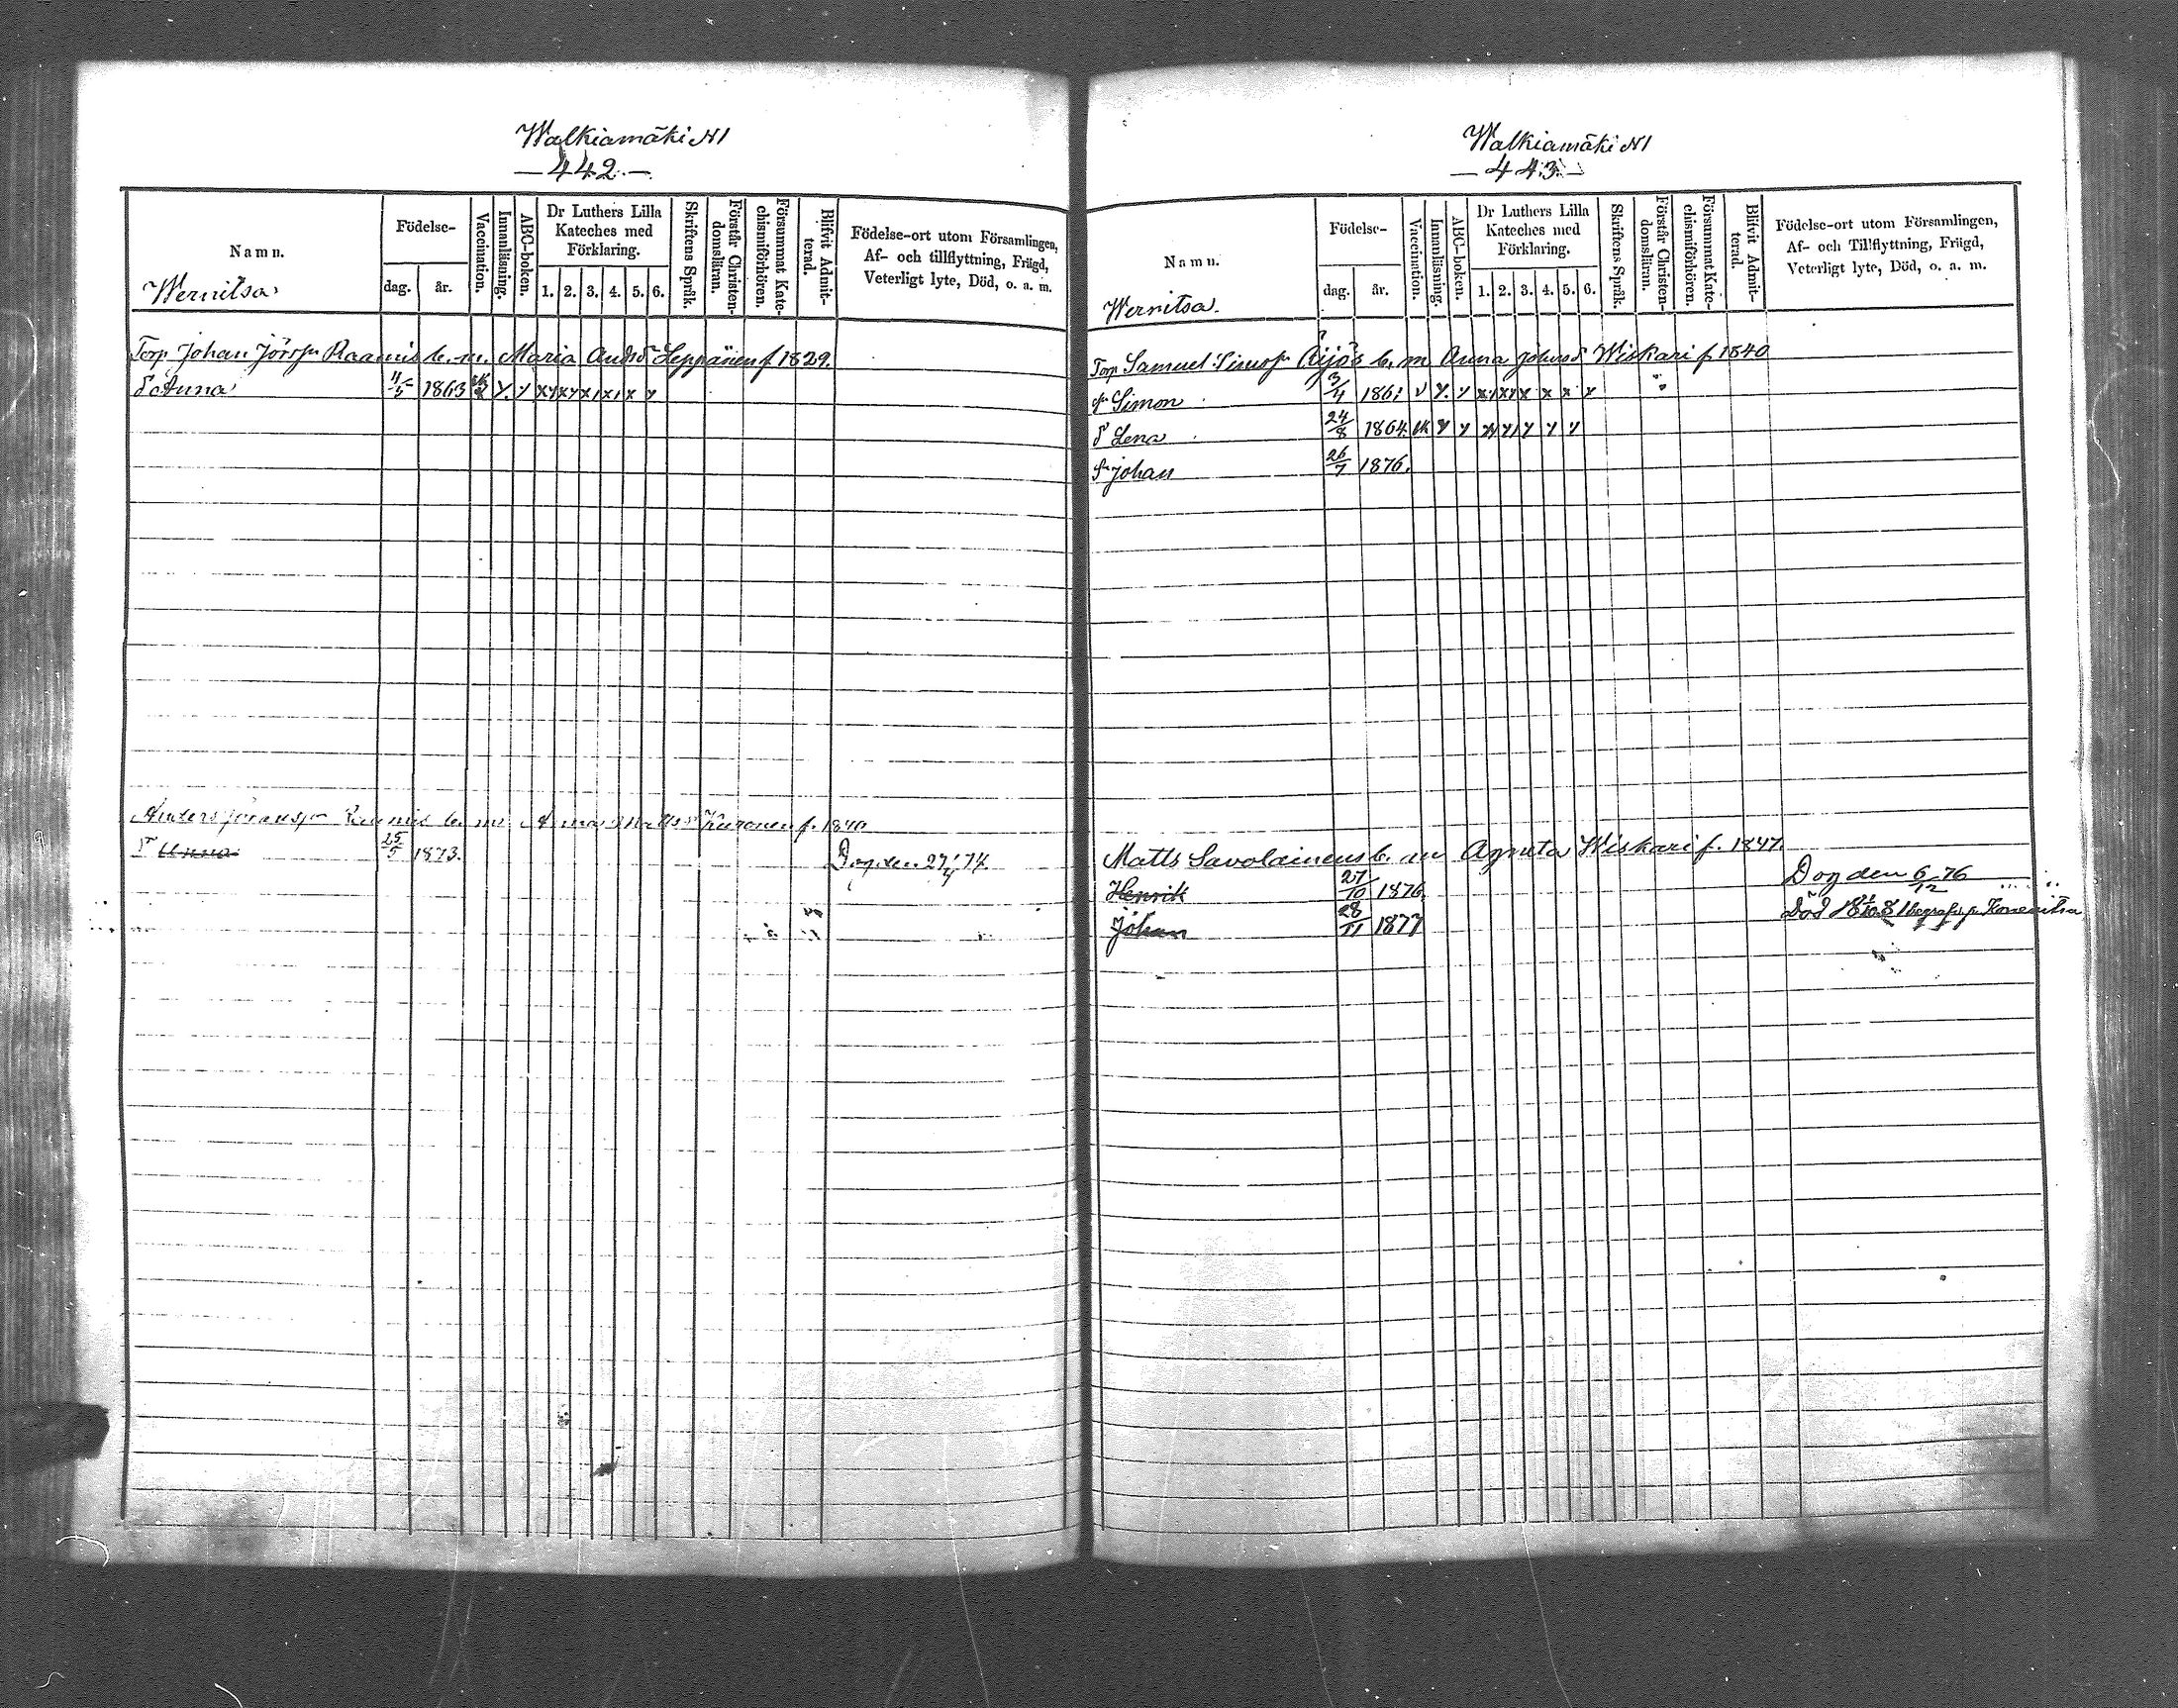 Walkiamäki N1
—442.—
Namn.
Födelse-
dag.
år.
Vaccination.
Innanläsning.
ABC-boken.
Dr Luthers Lilla
Kateches med
Förklaring.
1. 2. 3. 4. 5. 6.
Skriftens Språk.
Förstår Christen-
domsläran.
Försummat Kate-
chismiförhören.
Blifvit Admit-
terad.
Födelse-ort utom Församlingen,
Af- och tillflyttning, Frägd,
Veterligt lyte, Död, o. a. m.
Wernitsa
Torp Johan Jörsfn Raamis b. m. Maria Andsd Leppänen f 1829.
d Anna 1863
Anders b. m. Anna Matts Kuronen f. 1840
d Anna 25/5 1873. Dog den 27/4 74.
Walkiamäki N1
—443.—
Namn.
Födelse-
dag.
år.
Vaccination.
Innanläsning.
ABC-boken.
Dr Luthers Lilla
Kateches med
Förklaring.
1. 2. 3. 4. 5. 6.
Skriftens Språk.
Förstår Christen-
domsläran.
Försummat Kate-
chismiförhören.
Blifvit Admit-
terad.
Födelse-ort utom Församlingen,
Af- och Tillflyttning, Frägd,
Veterligt lyte, Död, o. a. m.
Wernitsa.
Torp Samuel Äijös b. m Anna Johansd Wiskari f. 1840
Simon 3/4 1861
d Lena 24/8 1864
Johan 26/7 1876.
Matts Savolainens b. m Agneta Wiskari f. 1847.
Henrik 27/10 1876. Dog den 6/12 76
Johan 28/11 1877 Död